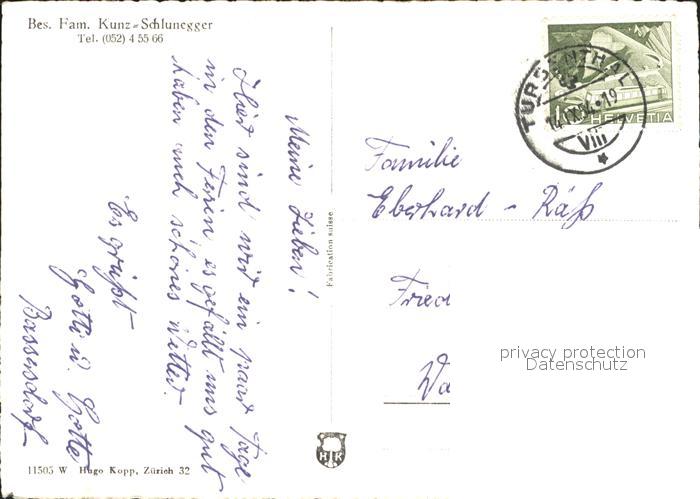 Bes. Fam. Kunz-Schlunegger
Tel. (052) 4 55 66
Meine Lieben!
Hier sind wir ein paar Tage
in den Ferien es gefällt uns gut
haben auch schönes Wetter.
Es grüßt
Götti u. Gotte
Bassersdorf
11505 W Hugo Kopp, Zürich 32
Fabrication suisse
HK
TURBENTHAL
VIII
HELVETIA
Familie
Eberhard - Räß
Fried
Wa
privacy protection
Datenschutz